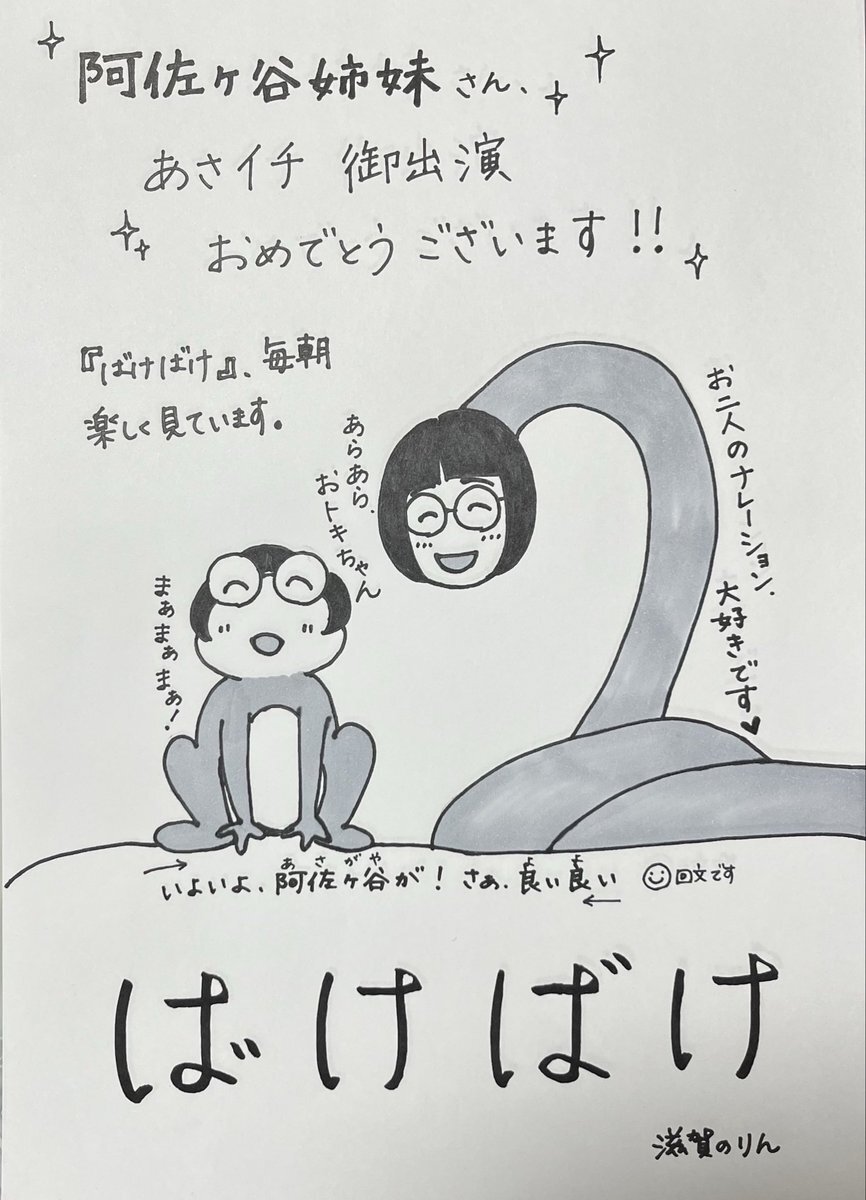 阿佐ヶ谷姉妹さん、
あさイチ 御出演
おめでとうございます!!
『ばけばけ』、毎朝
楽しく見ています。
お二人のナレーション、
大好きです♥
あらあら、
おトキちゃん
まぁまぁまぁ!
→
あさがや よ よ
いよいよ、阿佐ヶ谷が!さぁ、良い良い ☺回文です
←
ばけばけ
滋賀のりん